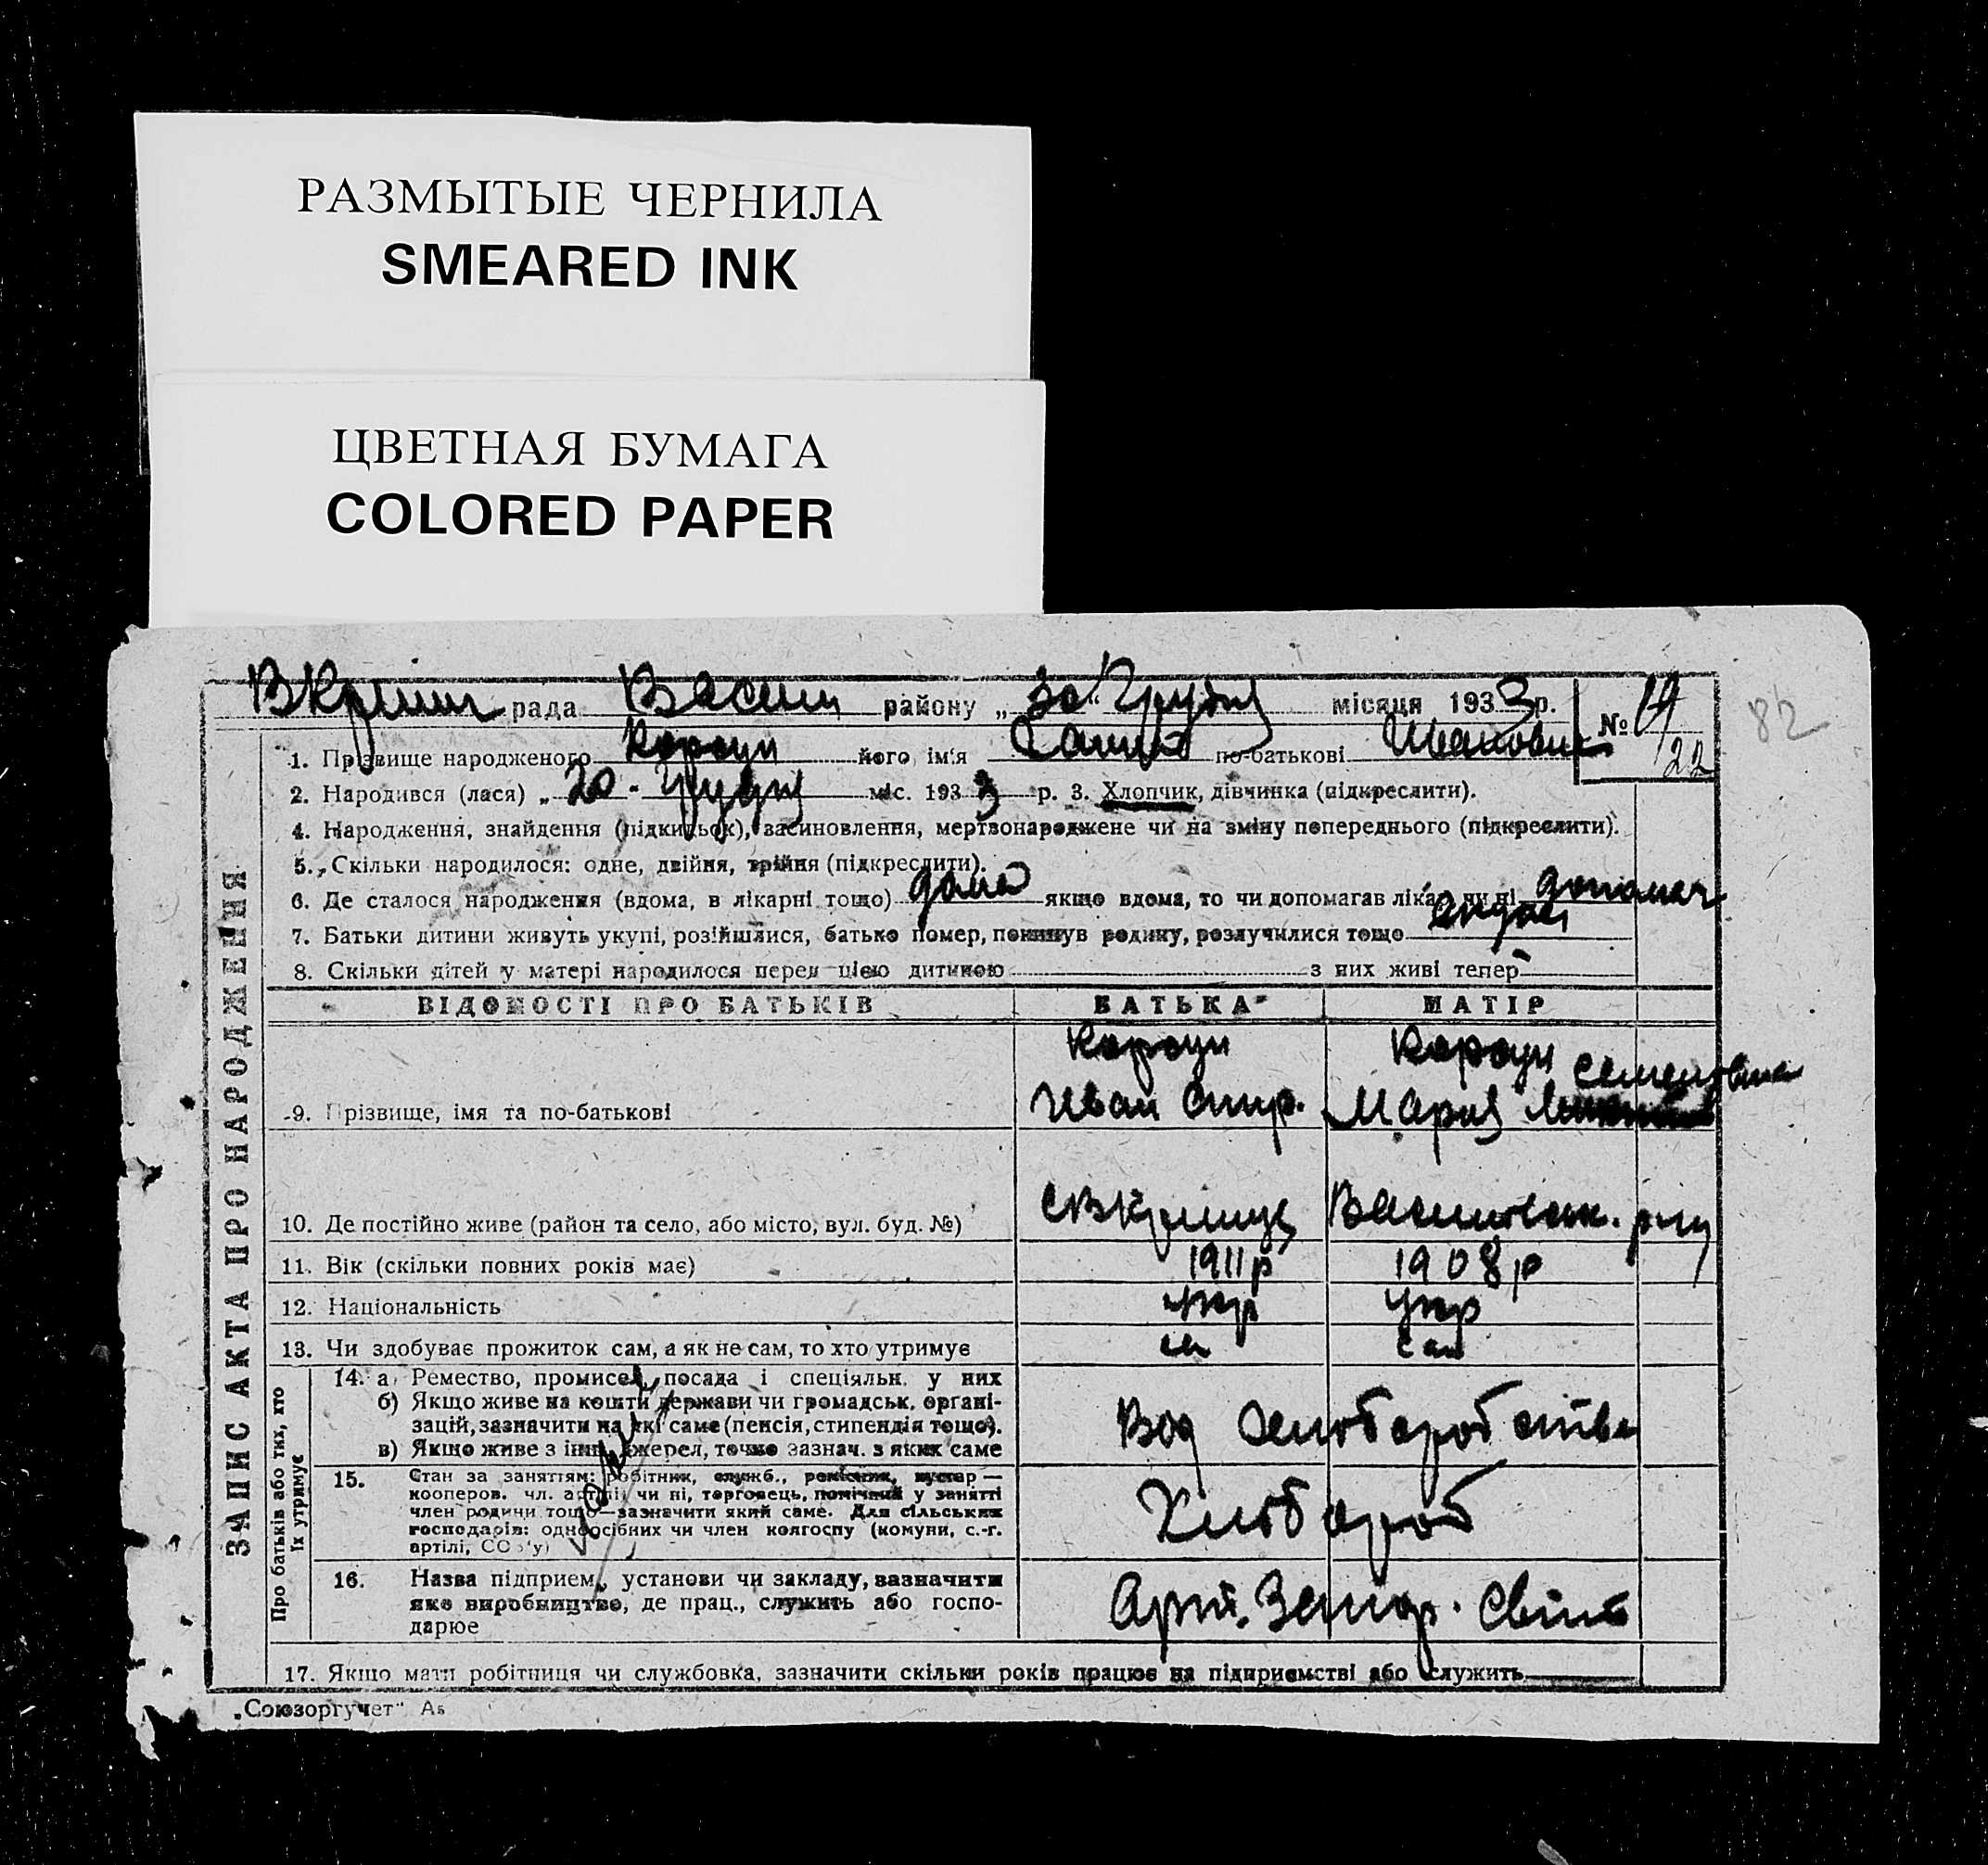 РАЗМЫТЫЕ ЧЕРНИЛА
SMEARED INK
ЦВЕТНАЯ БУМАГА
COLORED PAPER
рада Васил району „30“ Грудня місяця 1933 р. № 19
82
22
1. Прізвище народженого Караун його ім'я по-батькові Иванович
2. Народився (лася) „20 - Грудня міс. 1933 р. 3. Хлопчик, дівчинка (підкреслити).
4. Народження, знайдення (підкидьок), засиновлення, мертвонароджене чи на зміну попереднього (підкреслити).
5. Скільки народилося: одне, двійня, трійня (підкреслити).
6. Де сталося народження (вдома, в лікарні тощо) дома якщо вдома, то чи допомагав лікар чи ні
7. Батьки дитини живуть укупі, розійшлися, батько помер, покинув родину, розлучилися тощо
8. Скільки дітей у матері народилося перед цією дитиною з них живі тепер
ЗАПИС АКТА ПРО НАРОДЖЕННЯ
ВІДОМОСТІ ПРО БАТЬКІВ БАТЬКА МАТІР
Караун Караун
9. Прізвище, імя та по-батькові Иван Спир. Мария Семеновна
10. Де постійно живе (район та село, або місто, вул. буд. №)
11. Вік (скільки повних років має) 1911 р 1908 р
12. Національність укр укр
13. Чи здобуває прожиток сам, а як не сам, то хто утримує сам
Про батьків або тих, хто їх утримує
14. а) Ремество, промисел, посада і спеціяльн. у них
б) Якщо живе на кошти держави чи громадськ. органі-
зацій, зазначити на які саме (пенсія, стипендія тощо).
в) Якщо живе з інш. джерел, точно зазнач. з яких саме
15. Стан за заняттям: робітник, служб., ремісник, кустар —
кооперов. чл. артілі чи ні, торговець, помічний у занятті
член родини тощо—зазначити який саме. Для сільських
господарів: одноосібних чи член колгоспу (комуни, с.-г.
артілі, СОЗ'у)
Хлібороб
16. Назва підприєм., установи чи закладу, зазначити
яке виробництво, де прац., служить або госпо-
дарюе
Арт.
17. Якщо мати робітниця чи службовка, зазначити скільки років працює на підприємстві або служить
„Союзоргучет"